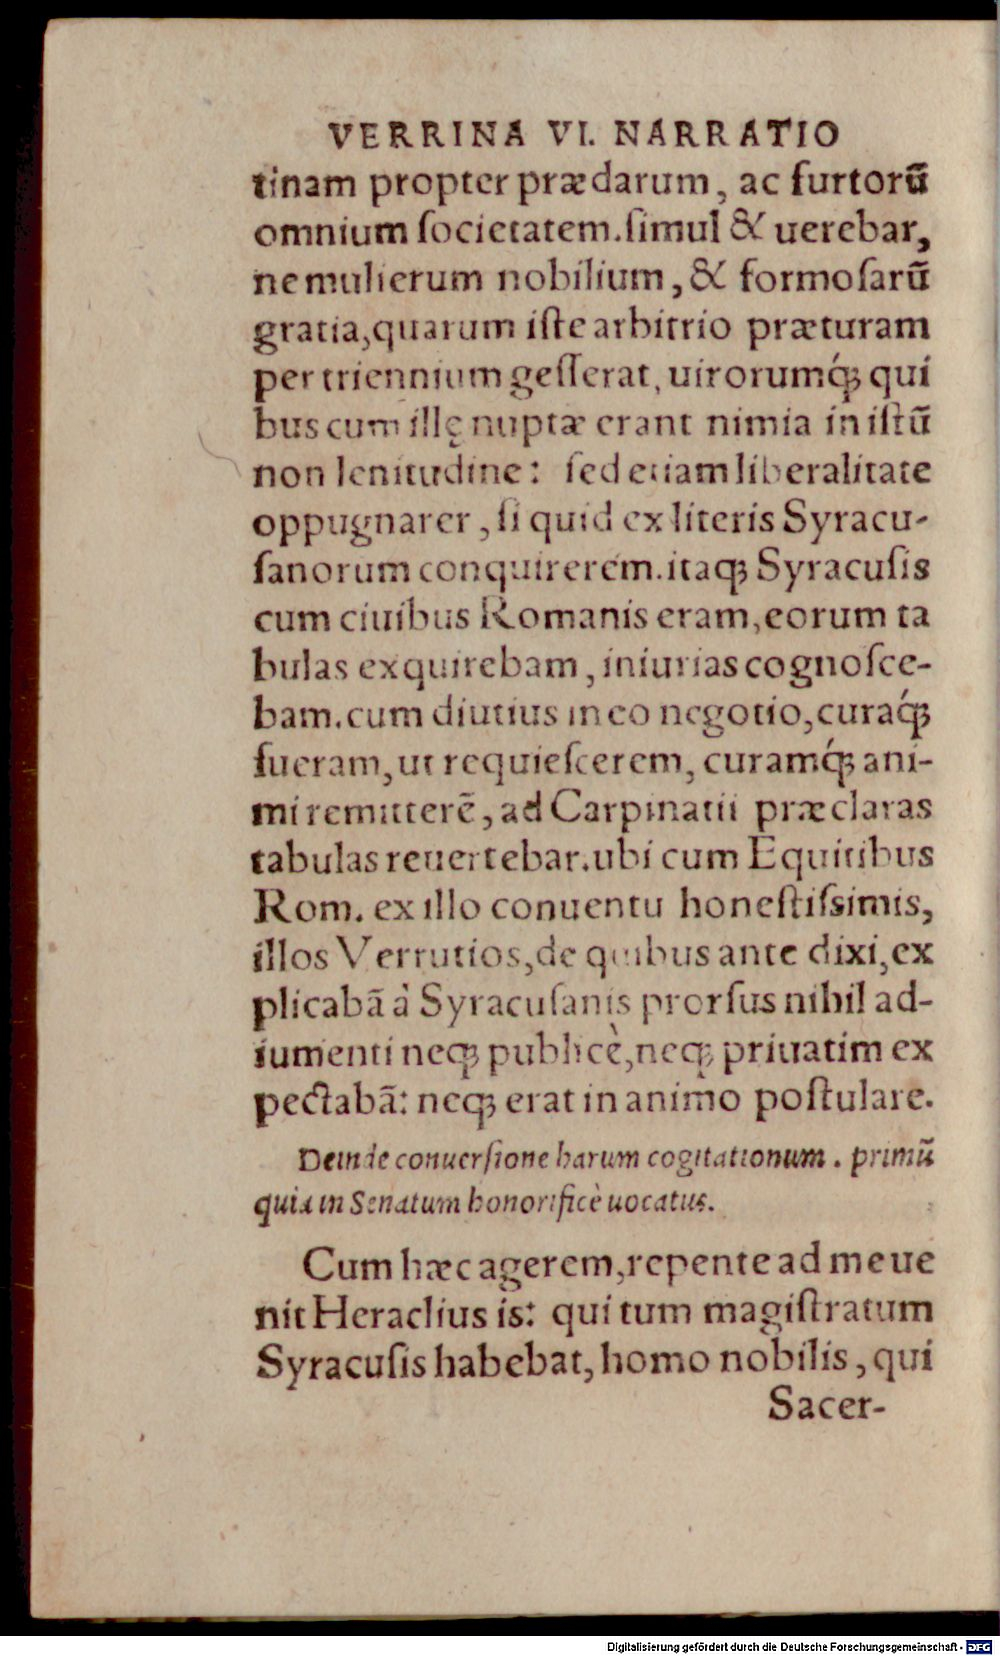 VERRINA VI. NARRATIO
tinam propter prædarum, ac furtorū
omnium ſocietatem.ſimul & uerebar,
ne mulierum nobilium, & formoſarū
gratia,quarum iſte arbitrio præturam
per triennium geſſerat, uirorumq́; qui
bus cum illę nuptæ erant nimia in iſtū
non lenitudine: ſed etiam liberalitate
oppugnarer, ſi quid ex literis Syracu-
ſanorum conquirerem.itaq; Syracuſis
cum ciuibus Romanis eram,eorum ta
bulas exquirebam, iniurias cognoſce-
bam.cum diutius in eo negotio,curaq́;
fueram,ut requieſcerem, curamq́; ani-
mi remitterē, ad Carpinatii præclaras
tabulas reuertebar.ubi cum Equitibus
Rom. ex illo conuentu honeſtiſsimis,
illos Verrutios,de quibus ante dixi,ex
plicabā à Syracuſanis prorſus nihil ad-
iumenti neq; publicè,neq; priuatim ex
pectabā: neq; erat in animo poſtulare.
Deinde conuerſione harum cogitationum. primū
quia in Senatum honorificè uocatus.
Cum hæc agerem,repente ad me ue
nit Heraclius is: qui tum magiſtratum
Syracuſis habebat, homo nobilis, qui
Sacer-
Digitalisierung gefördert durch die Deutsche Forschungsgemeinschaft - DFG